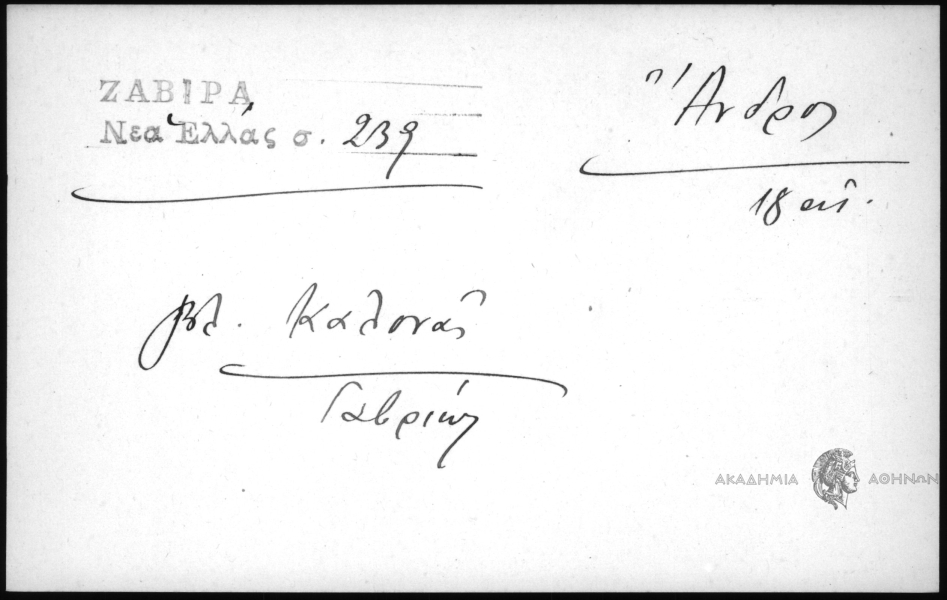 ΖΑΒΙΡΑ
Νεα Ἑλλάς σ. 239
Ἄνδρος
18 αἰ.
βλ. Καλονᾶς
Γαβριὴλ
ΑΚΑΔΗΜΙΑ ΑΘΗΝΩΝ